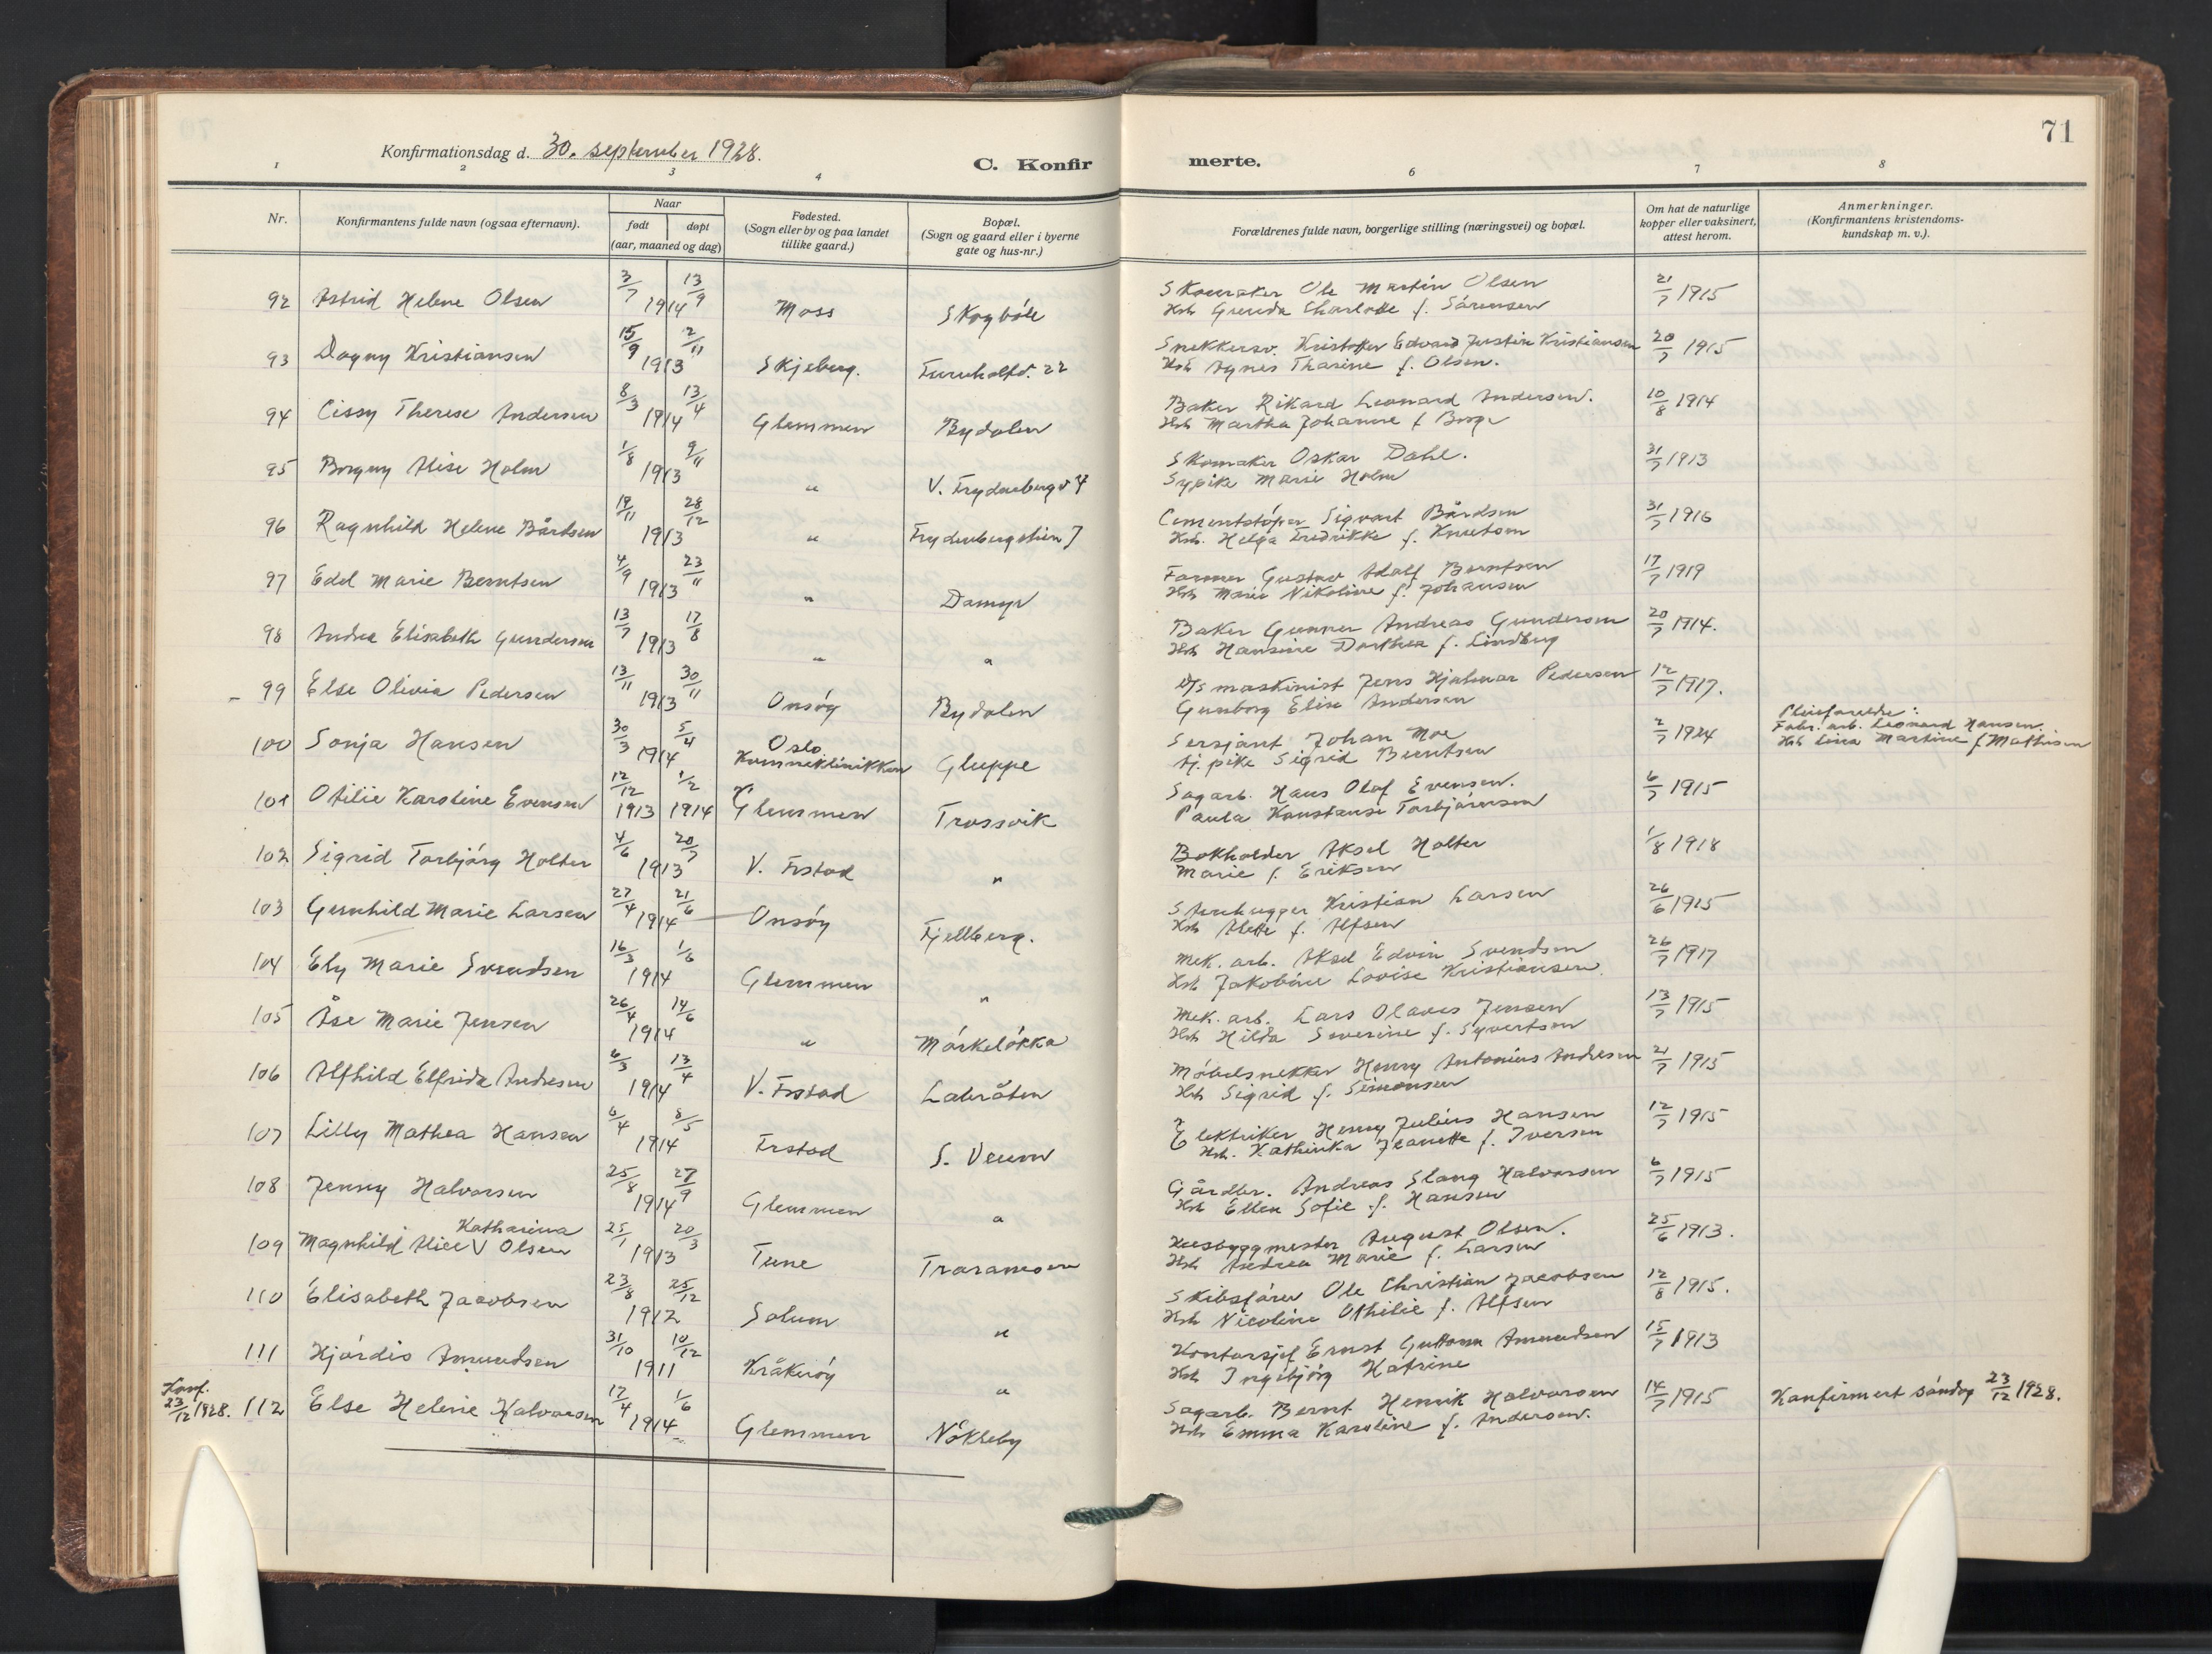 71
Konfirmationsdag d. 30. september 1928.
C. Konfir merte.
1 2 3 4 6 7 8
Nr.
Konfirmantens fulde navn (ogsaa efternavn).
Naar
født døpt
(aar, maaned og dag)
Fødested.
(Sogn eller by og paa landet
tillike gaard.)
Bopæl.
(Sogn og gaard eller i byerne
gate og hus-nr.)
Forældrenes fulde navn, borgerlige stilling (næringsvei) og bopæl.
Om hat de naturlige
kopper eller vaksinert,
attest herom.
Anmerkninger.
(Konfirmantens kristendoms-
kundskap m. v.).
92 Astrid Helene Olsen 3/7 13/9 1914 Moss Skogböle
Skomaker Ole Martin Olsen 21/7 1915
Hst Charlotte f. Sörensen
93 Dagny Kristiansen 15/9 2/11 1913 Skjeberg. Furuholtv. 22
Snekkersv. Kristoffer Edvard Justin Kristiansen 20/7 1915
Hst Agnes Tharine f. Olsen.
94 Cissy Therese Andersen 8/3 13/4 1914 Glemmen Bydalen
Baker Rikard Leonard Andersen. 10/8 1914
Hst Martha Johanne f Borge
95 Borgny Alise Holm 1/8 9/11 1913 " V. Frydenbergv 4
Skomaker Oskar Dahl. 31/7 1913
Sypike Marie Holm
96 Ragnhild Helene Bårdsen 19/11 28/12 1913 " Frydenbergstien 7
Cementstöper Sigvart Bårdsen 31/7 1916
Hst. Helga Fredrikke f. Knutsen
97 Edel Marie Berntsen 4/9 23/11 1913 " Damyr
Farmer Gustav Adolf Berntsen 17/7 1919
Hst Marie Nikoline f. Johansen
98 Andrea Elisabeth Gundersen 13/7 17/8 1913 " "
Baker Gunner Andreas Gundersen 20/7 1914.
Hst Hansine Dorthea f. Lindberg
99 Else Olivia Pedersen 13/11 30/11 1913 Onsöy Bydalen
D/S maskinist Jens Hjalmar Pedersen 12/7 1917.
Gunborg Elise Andersen
100 Sonja Hansen 30/3 5/4 1914 Oslo Kvinneklinikken Gluppe
Sersjant Johan Moe 2/7 1924
tj. pike Sigrid Berntsen
Pleieforeldre:
Fabr. arb. Leonard Hansen.
Hst Lina Martine f Mathisen
101 Otilie Karoline Evensen 12/12 1913 1/2 1914 Glemmen Trossvik
Sagarb. Hans Olaf Evensen. 6/7 1915
Paula Konstanse Torbjörnsen
102 Sigrid Torbjörg Holter 4/6 20/7 1913 V. Frstad "
Bokholder Aksel Holter 1/8 1918
Marie f. Eriksen
103 Gunhild Marie Larsen 27/4 21/6 1914 Onsöy Fjellberg.
Stenhugger Kristian Larsen 26/6 1915
Hst Alette f. Alfsen
104 Ely Marie Svendsen 16/3 1/6 1914 Glemmen "
Mek. arb. Aksel Edvin Svendsen 26/7 1917
Hst Jakobine Lovise Kristiansen.
105 Åse Marie Jensen 26/4 14/6 1914 " Mörkelökka
Mek. arb. Lars Olaves Jensen 13/7 1915
Hst Hilda Severine f. Syvertsen
106 Alfhild Elfrida Andresen 6/3 13/4 1914 V. Frstad Labråten
Möbelsnekker Henry Antonius Andresen 21/7 1915
Hst Sigrid f. Simonsen
107 Lilly Mathea Hansen 6/4 8/5 1914 Frstad S. Veum
Elektriker Henry Julius Hansen 12/7 1915
Hst. Kathinka Jeanette f. Iversen
108 Jenny Halvorsen 25/8 27/9 1914 Glemmen "
Gårdbr. Andreas Slang Halvorsen 6/7 1915
Hst Ellen Sofie f. Hansen
109 Magnhild Alice V Olsen 25/1 20/3 1913 Tune Traraveien
Katharina
Husbyggmester August Olsen. 25/6 1913.
Hst Andrea Marie f. Larsen
110 Elisabeth Jacobsen 23/8 25/12 1912 Solum "
Skibsförer Ole Christian Jacobsen 12/8 1915.
Hst Nicoline Othilie f. Alfsen
111 Hjördis Amundsen 31/10 10/12 1911 Kråkeröy "
Kontorsjef Ernst Guttorm Amundsen 15/7 1913
Hst Ingebjörg Katrine
Konf. 23/12 1928. 112 Else Helene Halvorsen 17/4 1/6 1914 Glemmen Nökleby
Sagarb. Bernt Henrik Halvorsen 14/7 1915 Konfirmert söndag 23/12 1928.
Hst Emma Karoline f. Andersen.